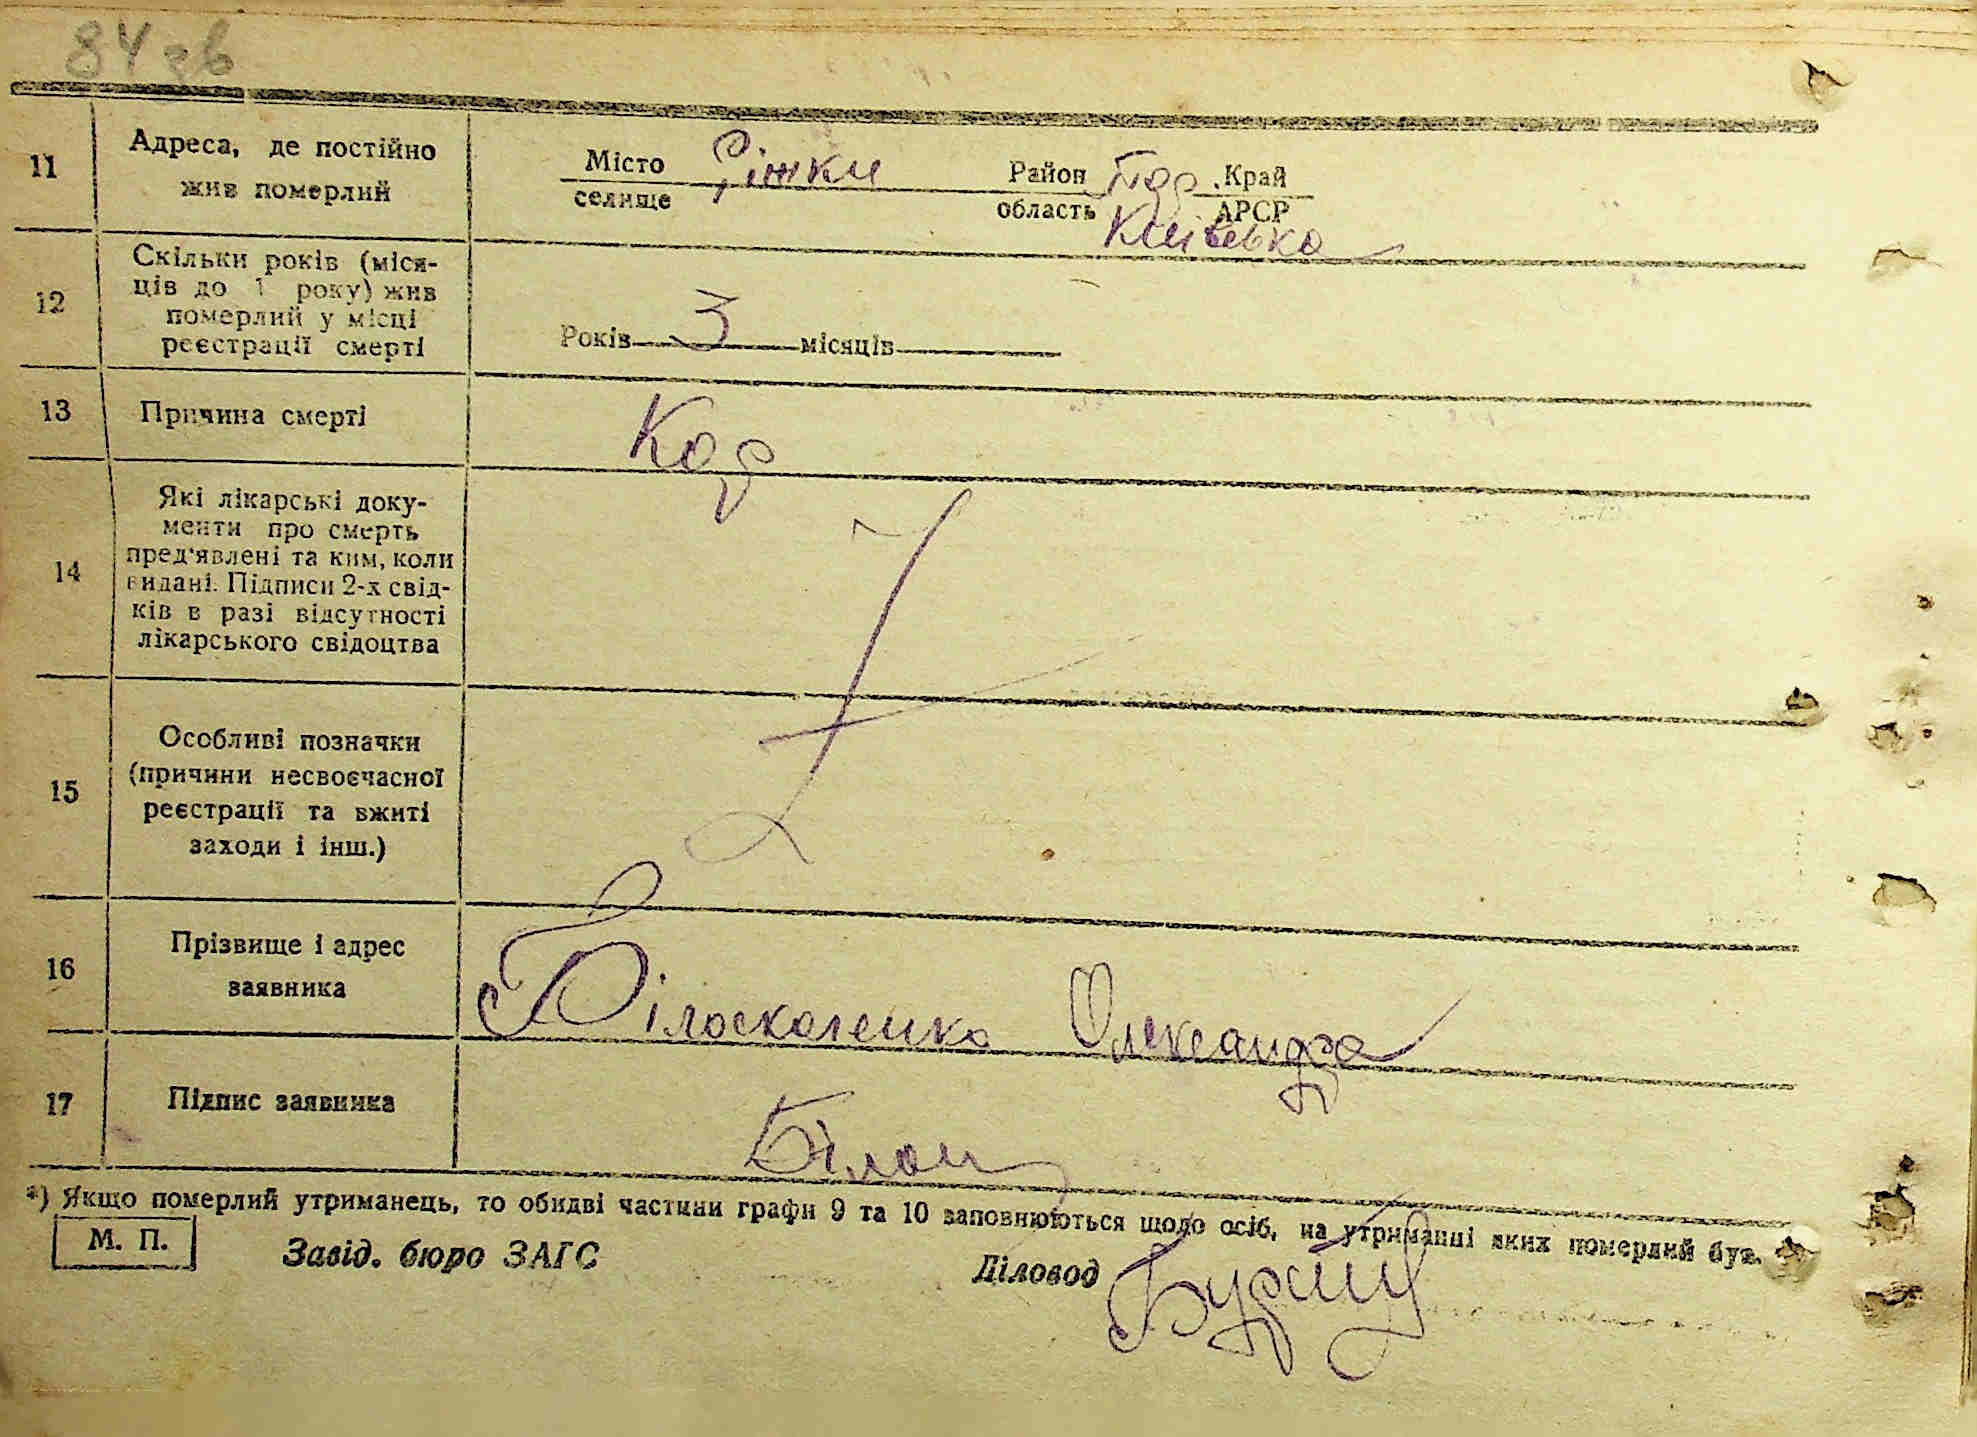 84 зв
11
Адреса, де постійно
жив померлий
Місто
селище
Район
область
Край
АРСР
Київська
12
Скільки років (міся-
ців до 1 року) жив
померлий у місці
реєстрації смерті
Років 3 місяців
13
Причина смерті
14
Які лікарські доку-
менти про смерть
пред'явлені та ким, коли
видані. Підписи 2-х свід-
ків в разі відсутності
лікарського свідоцтва
15
Особливі позначки
(причини несвоєчасної
реєстрації та вжиті
заходи і інш.)
16
Прізвище і адрес
заявника
Олександра
17
Підпис заявника
*) Якщо померлий утриманець, то обидві частини графи 9 та 10 заповнюються щодо осіб, на утриманні яких померлий був.
М. П.
Завід. бюро ЗАГС
Діловод